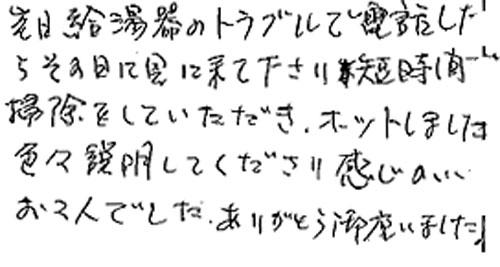 先日給湯器のトラブルで電話した
らその日に見に来て下さり短時間で
掃除をしていただき、ホットしました
色々説明してくださり感じのいい
お2人でした。ありがとう御座いました